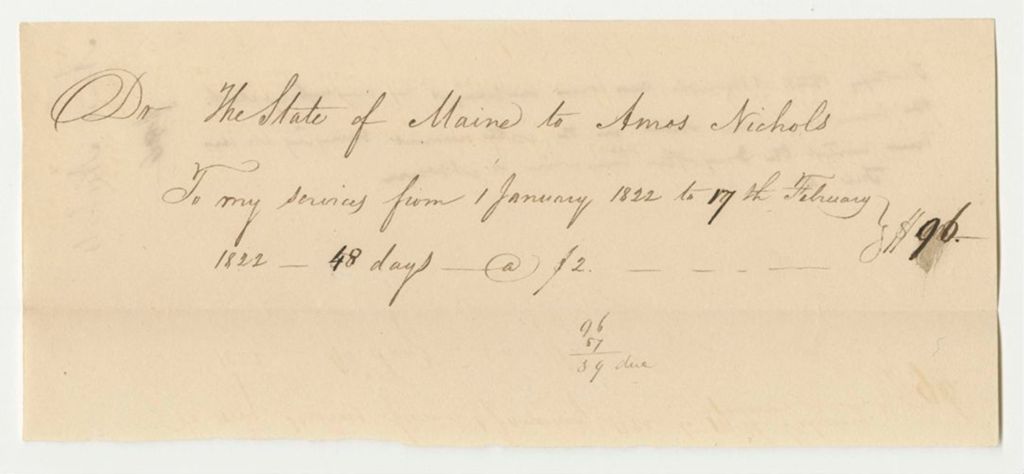 Dr The State of Maine to Amos Nichols
To my services from 1 January 1822 to 17th February
1822 — 48 days — @ $2. — — — — $96.—
96
57
39 due